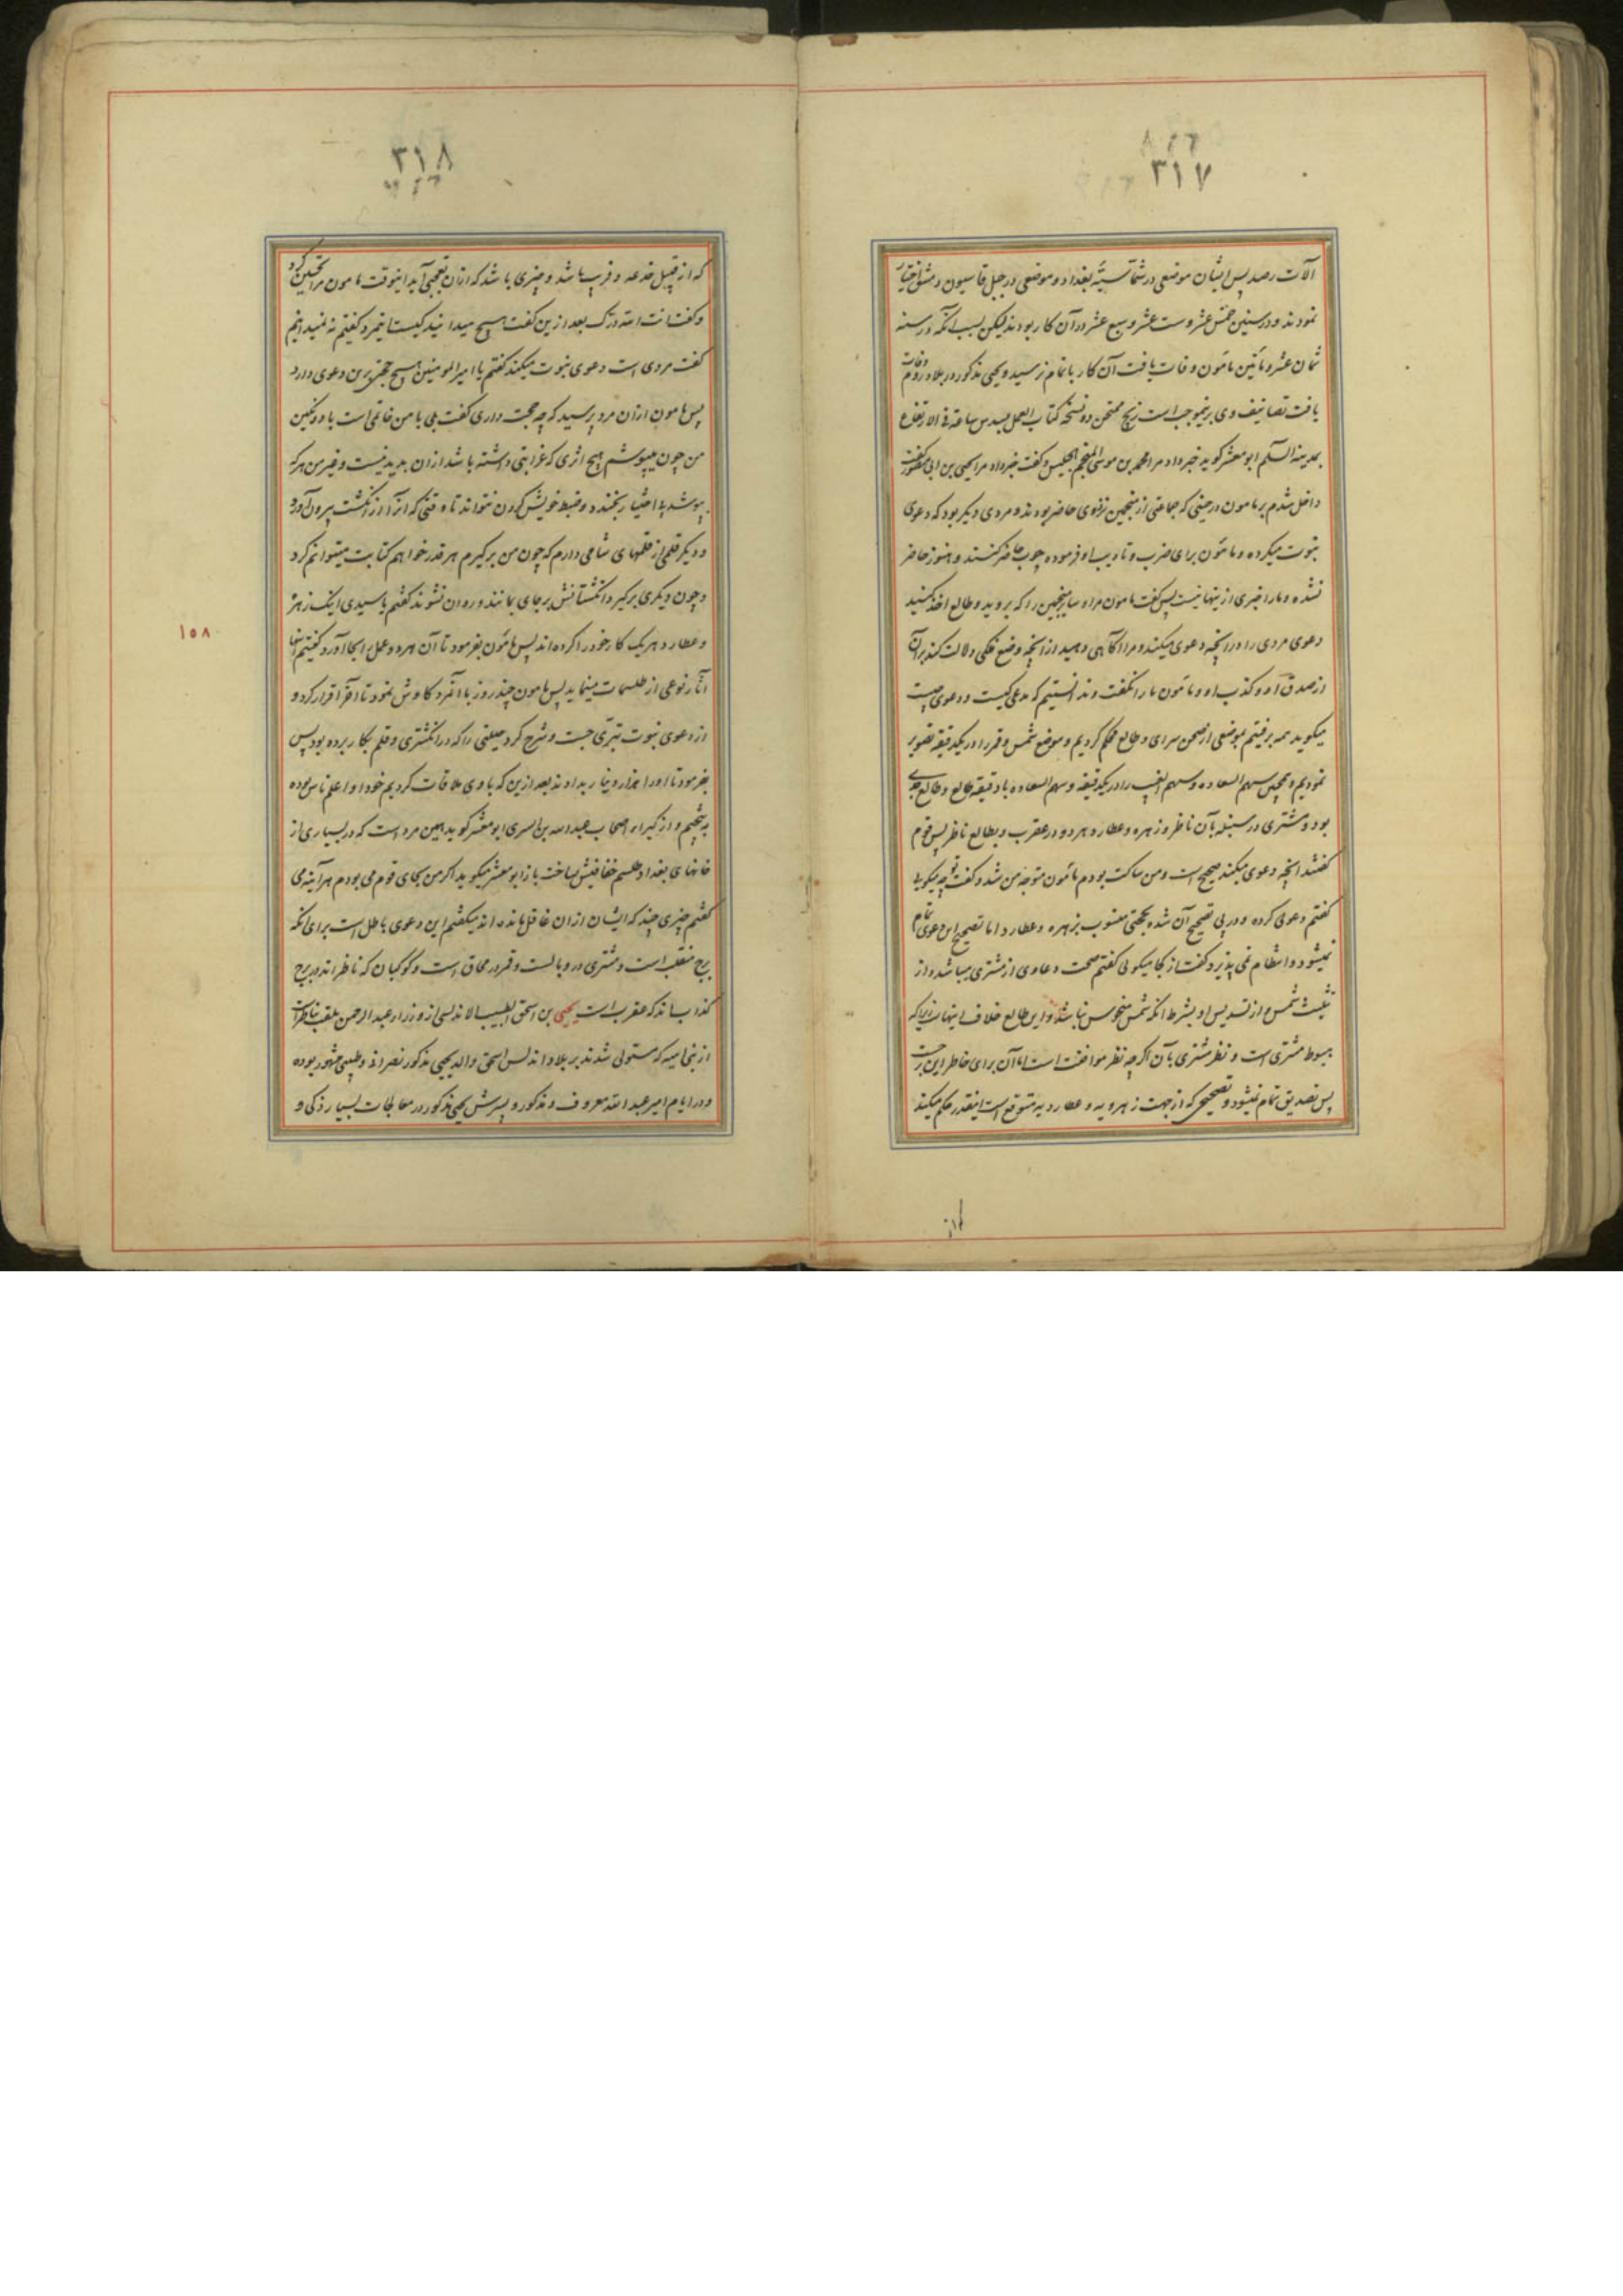 ۳۱۷
آلات رصد پس ایشان موضعی در شماسیه بغداد و موضعی در جبل قاسیون دمشق اختیار
نمودند و در سنین خمس عشر و ست عشر و سبع عشر در آن کار بودند لیکن بسبب آنکه در سنه
ثمان عشر و مأتین مامون وفات یافت آن کار باتمام نرسید و یحیی مذکور در بلاد روم وفات
یافت تصانیف وی برینموجب است زیج ممتحن دو نسخه کتاب العمل بسدس ساعة فی الارتفاع
بمدینة السلم ابو معشر کوید خبر داد مرا محمد بن موسی المنجم الجلیس و کفت خبر داد مرا یحیی بن ابی منصور کفت
داخل شدم بر مامون در حینی که جماعتی از منجمین نزد وی حاضر بودند و مردی دیکر بود که دعوی
نبوت میکرده و مامون برای ضرب و تادیب او فرموده چوب حاضر کنند و هنوز حاضر
نشده و ما را خبری از ینها نیست پس کفت مامون مرا و سایر منجمین را که بروید و طالع اخذ کنید
دعوی مردی را در آنچه دعوی میکند و مرا آکاهی دهید از آنچه وضع فلکی دلالت کند بر آن
از صدق او و کذب او و مامون ما را نکفت و ندانستیم که مدعی کیست و دعوی چیست
میکوید همه برفتیم بموضعی از صحن سرای و طالع محکم کردیم و موضع شمس و قمر را در یکدقیقه تصویر
نمودیم و همچنین سهم السعاده و سهم الغیب را در یکدقیقه و سهم السعاده با دقیقه طالع و طالع جدی
بود و مشتری در سنبله بآن ناظر و زهره و عطارد هر دو در عقرب و بطالع ناظر پس قوم
کفتند آنچه دعوی میکند صحیح است و من ساکت بودم مامون متوجه من شد و کفت تو چه میکویی
کفتم دعوی کرده و در پی تصحیح آن شده بحجتی منسوب بزهره و عطارد اما تصحیح این دعوی تمام
نمیشود و انتظام نمی پذیرد کفت از کجا میکوئی کفتم صحت دعاوی از مشتری میباشد و از
تثلیث شمس و از تسدیس او بشرط آنکه شمس منحوس نباشد و این طالع خلاف اینهاست زیرا که
هبوط مشتری است و نظر مشتری بآن اکرچه نظر موافقت است اما آن برای خاطر این برجست
پس تصدیق تمام نمیشود و تصحیحی که از جهت زهرویه و عطاردیه متوقع است اینقدر حکم میکند
۳۱۸
که از قبیل خدعه و فریب باشد و چیزی باشد که از آن تعجبی آید اینوقت مامون مرا تحسین کرد
و کفت انت لله درک بعد از ین کفت هیچ میدانید کیست اینمرد کفتم نه نمیدانیم
کفت مردی است دعوی نبوت میکند کفتم یا امیر المومنین هیچ حجتی برین دعوی دارد
پس مامون از ان مرد پرسید که چه حجت داری کفت بلی با من خاتمی است با دو نکین
من چون میپوشم هیچ اثری که غرابتی داشته باشد از ان پدید نیست و غیر من هر که
بپوشد بی اختیار بخندد و ضبط خویش کردن نتواند تا وقتی که آنرا از انکشت بیرون آورد
و دیکر قلمی از قلمهای شامی دارم که چون من برکیرم هر قدر خواهم کتابت میتوانم کرد
و چون دیکری برکیرد انکشتانش برجای بمانند و روان نشوند کفتم یا سیدی اینک زهره
و عطارد هریک کار خود را کرده اند پس مامون بفرمود تا آن مرد دو عمل را بجا آورد کفتیم اینها
آثار نوعی از طلسمات مینماید پس مامون چند روز با آنمرد کاوش نمود تا آخر اقرار کرد و
از دعوی نبوت تبرّی جست و شرح کرد حیلتی را که در انکشتری و قلم بکار برده بود پس
بفرمود تا او را هزار دینار بدادند بعد از ین که با وی ملاقات کردیم خود او اعلم ناس بوده
به تنجیم و از کبراء اصحاب عبد الله بن السری ابو معشر کوید همین مرد است که در بسیاری از
خانهای بغداد طلسم خنافیش بساخت باز ابو معشر میکوید اکر من بجای قوم می بودم هرآینه می
کفتم چیزی چند که ایشان از ان غافل مانده اند میکفتم این دعوی باطل است برای آنکه
برج منقلب است و مشتری در وبالست و قمر در محاق است و کوکبان که ناظر اند در برج
کذاب اند که عقرب است یحیی بن اسحق الطبیب الاندلسی از وزراء عبد الرحمن ملقب بناصر است
از بنی امیه که مستولی شدند بر بلاد اندلس اسحق والد یحیی مذکور نصرانی و طبیبی مشهور بوده
و در ایام امیر عبد الله معروف و مذکور و پسرش یحیی مذکور در معالجات بسیار ذکی و
۱۵۸